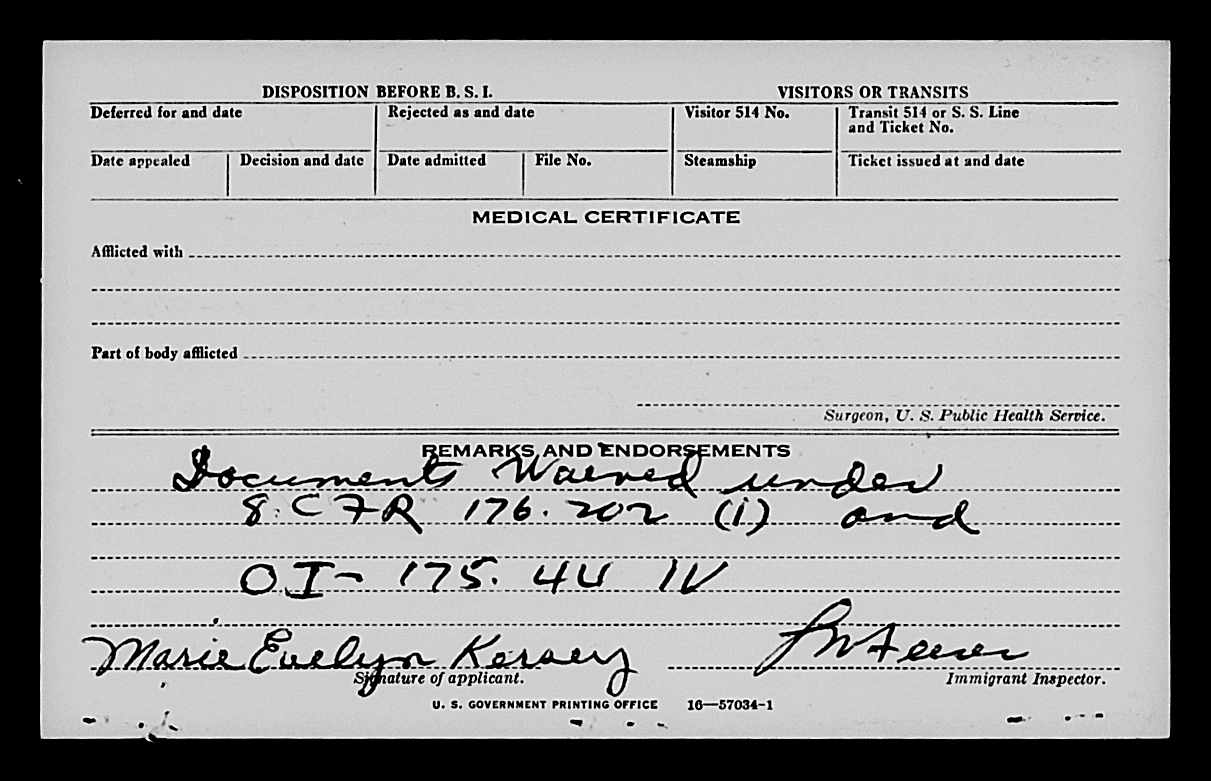 DISPOSITION BEFORE B. S. I. VISITORS OR TRANSITS
Deferred for and date Rejected as and date Visitor 514 No. Transit 514 or S. S. Line
and Ticket No.
Date appealed Decision and date Date admitted File No. Steamship Ticket issued at and date
MEDICAL CERTIFICATE
Afflicted with
Part of body afflicted
Surgeon, U. S. Public Health Service.
REMARKS AND ENDORSEMENTS
Documents Waived under
8 CFR 176.202 (i) and
OI- 175.
Marie Evelyn Kersey
Signature of applicant. Immigrant Inspector.
U. S. GOVERNMENT PRINTING OFFICE 16—57034-1